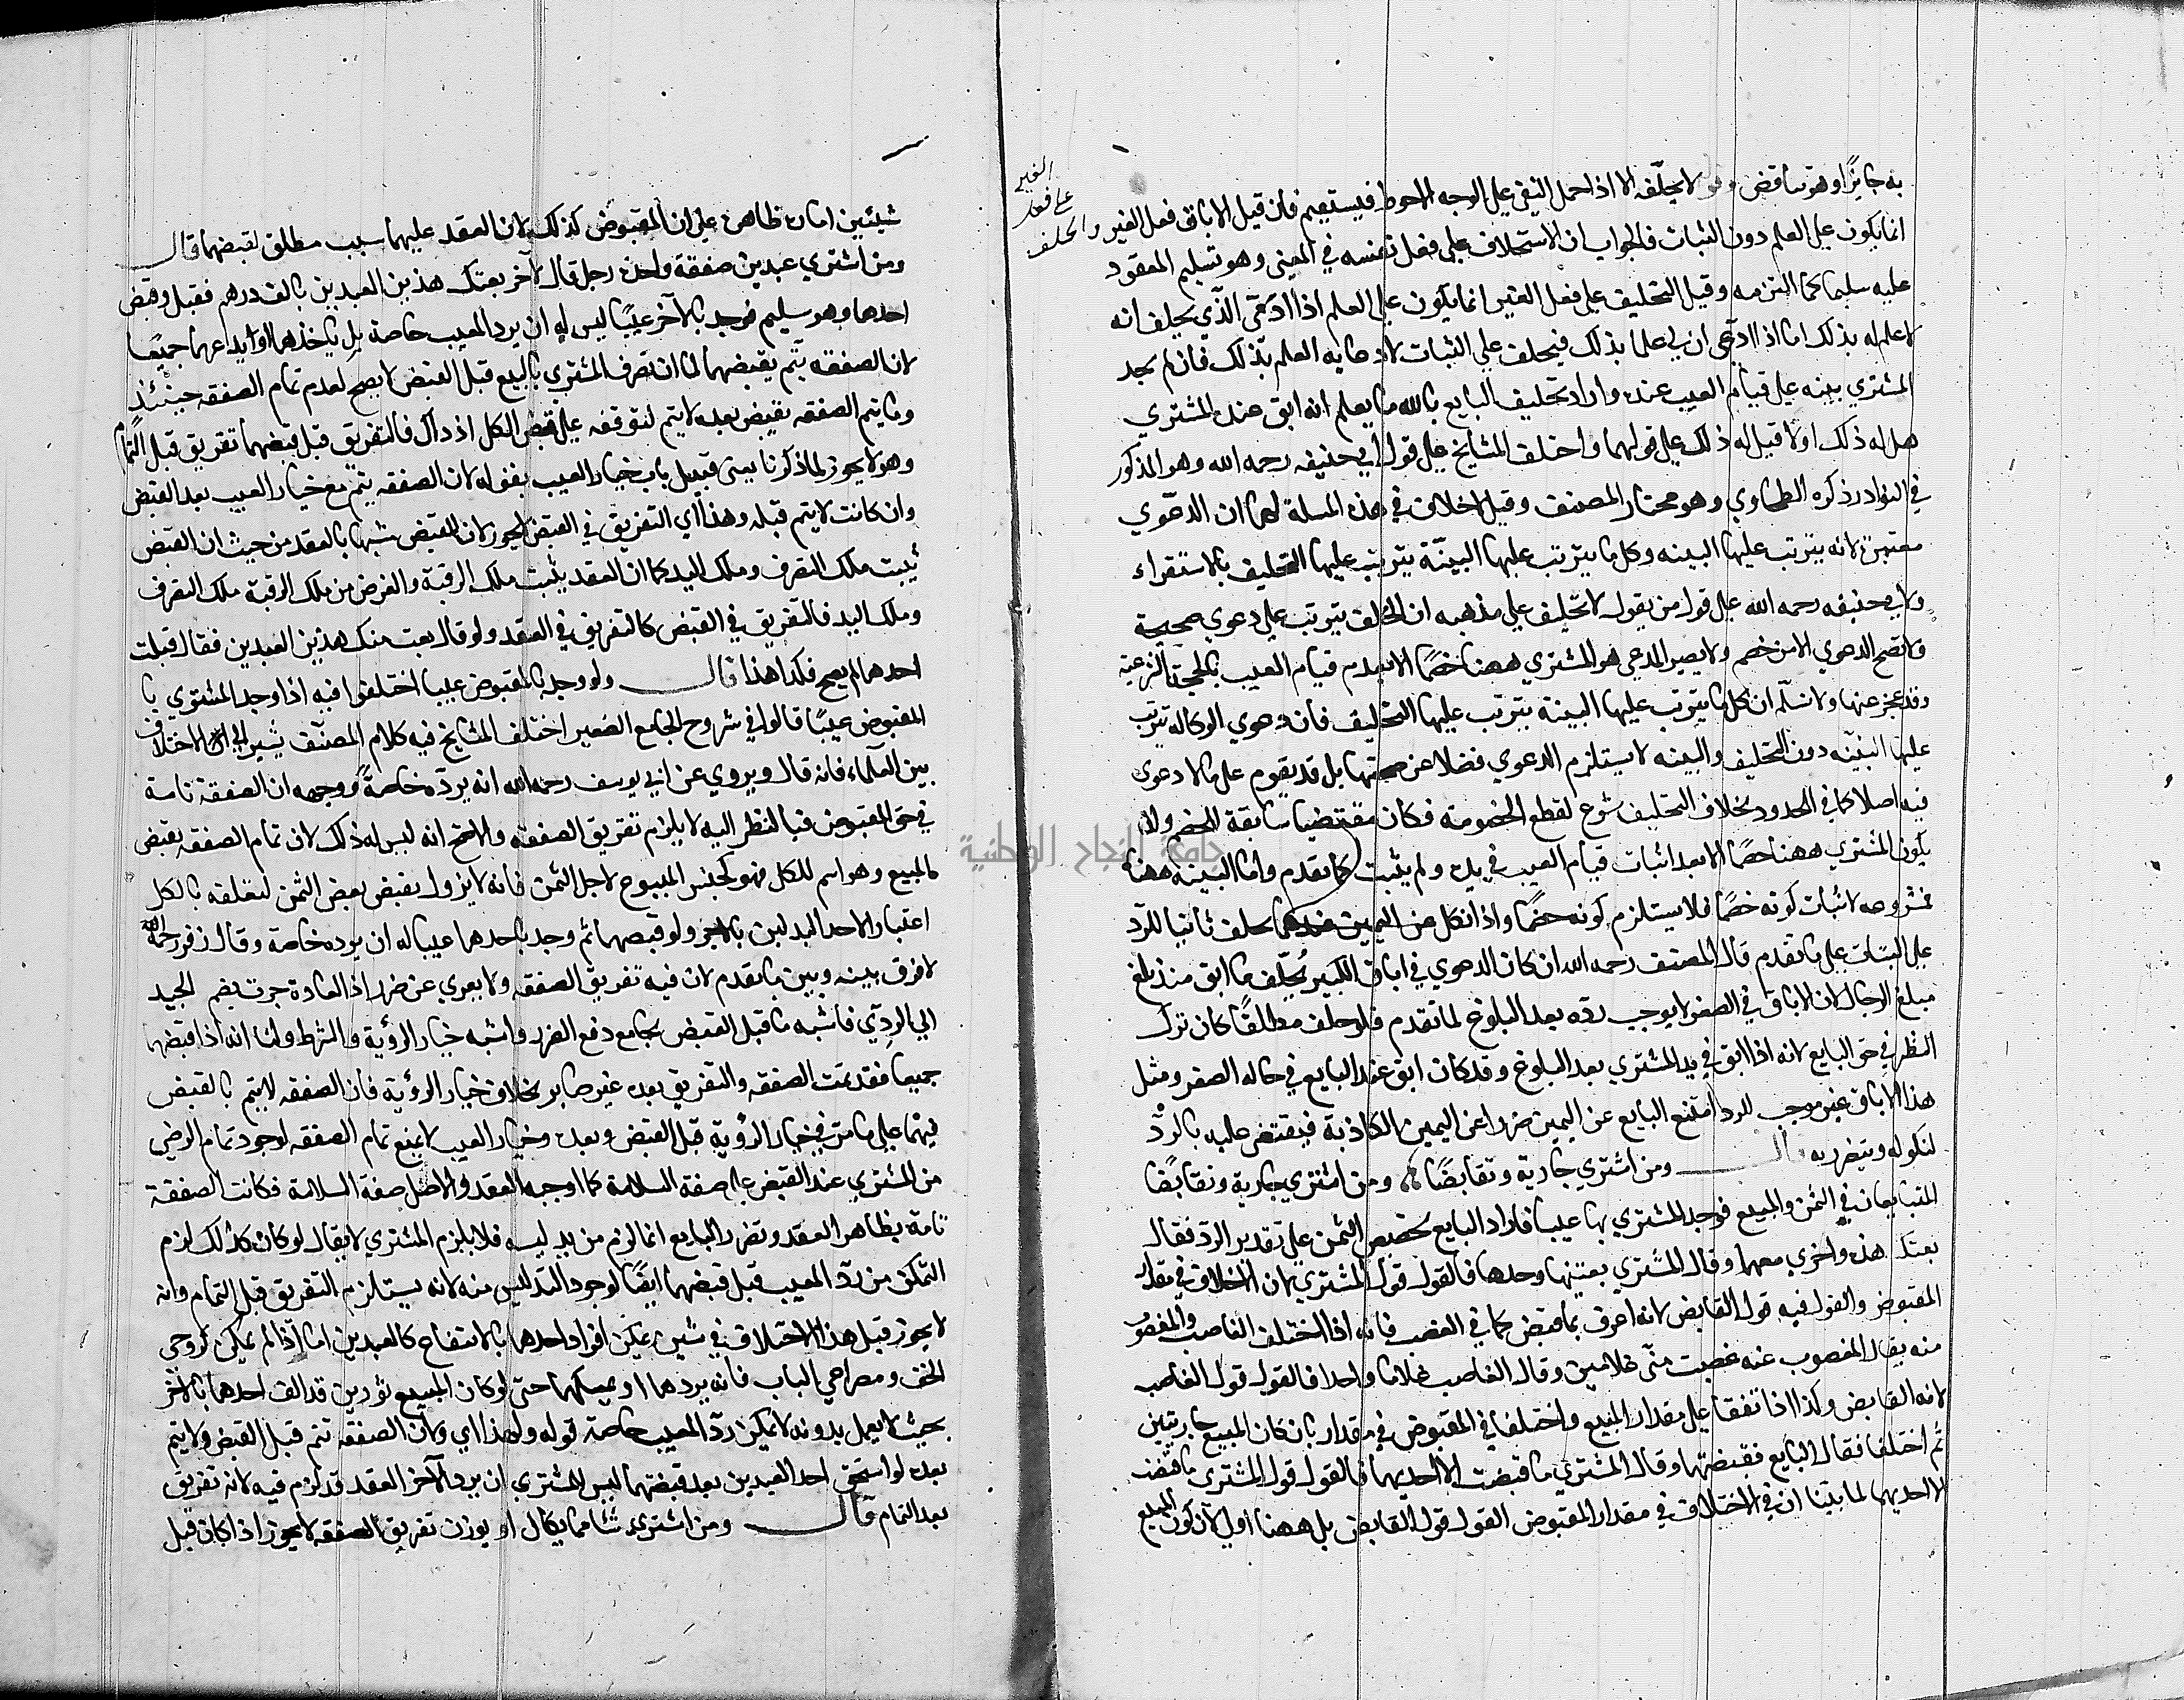 به جايزًا وهو مناقض لا يحلفه الا اذا حمل النفي على الوجه الاحوط فيستقيم فان قيل الاباق فعل الغير والحلف
على فعل
الغير
انما يكون على العلم دون الثبات فالجواب ان الاستحلاف على فعل نفسه في المعنى وهو تسليم المعقود
عليه سليما كما التزمه وقيل التحليف على فعل الغير انما يكون على العلم اذا ادّعى الذي يحلف انه
لا علم له بذلك اما اذا ادّعى ان لي علما بذلك فيحلف على الثبات لادعايه العلم بذلك فان لم يجد
المشتري بينه على قيام العيب عنده واراد تحليف البايع بالله ما يعلم انه ابق عند المشتري
هل له ذلك اولا قيل له ذلك على قولهما واختلف المشايخ على قول ابي حنيفه رحمه الله وهو المذكور
في النوادر ذكره الطحاوي وهو مختار المصنف وقيل لا خلاف في هذه المسلة لهما ان الدعوي
معتبرة لانه يترتب عليها البينه وكل ما يترتب عليها البينّة يترتب عليها التحليف بالاستقراء
ولابي حنيفه رحمه الله على قول من يقول لا تحليف على مذهبه ان الحلف يترتب على دعوي صحيحة
ولا تصح الدعوي الا من خصم ولا يصير المدعي هو المشتري ههنا خصمًا الا بعد قيام العيب بالحجة الشرعية
وقد عجز عنها ولا نسلّم ان كل ما يترتب عليها البينة يترتب عليها التحليف فان دعوي الوكاله تترتب
عليها البيّنه دون التحليف والبينه لا يستلزم الدعوي فضلا عن صحتها بل قد يقوم على ما لا دعوى
فيه اصلا كما في الحدود بخلاف التحليف شرع لقطع الخصومة فكان مقتضيا سابقة الخصم ولا
يكون المشتري ههنا خصمًا الا بعد اثبات قيام العيب في يده ولم يثبت كما تقدم واما البينه ههنا
فمشروعه لاثبات كونه خصمًا فلا يستلزم كونه خصمًا واذا نكل عن اليمين عندهما يحلف ثانيا للرد
على الثبات على ما تقدم قال المصنف رحمه الله ان كان الدعوي في اباق الكبير يُحلّف ما ابق منذ بلغ
مبلغ الرجال لان الاباق في الصغر لا يوجب ردّه بعد البلوغ لما تقدم فلو حلف مطلقًا كان ترك
النظر في حق البايع لانه اذا ابق في يد المشتري بعد البلوغ وقد كان ابق عند البايع في حاله الصغر ومثل
هذا الاباق غير موجب للرد امتنع البايع عن اليمين ضرا عن اليمين الكاذبة فيقضى عليه بالردّ
لنكوله ويتضرر به قال ومن اشتري جارية وتقابضًا ومن اشتري جارية وتقابضًا
المتبايعان في الثمن والمبيع فوجد المشتري بها عيبا فاراد البايع تخصيص الثمن على تقدير الرد فقال
بعتك هذه واخري معها وقال المشتري بعتنيها وحدها فالقول قول المشتري لان الاختلاف في مقدار
المقبوض والقول فيه قول القابض لانه اعرف بما قبض كما في الغصب فانه اذا اختلف الغاصب والمغصوب
منه يقال المغصوب عنه غصبت منّي غلامين وقال الغاصب غلاما واحدا فالقول قول الغاصب
لانه القابض وكذا اذا تفقا على مقدار المبيع واختلفا في المقبوض في مقدار بان كان المبيع جاريتين
ثم اختلفا فقال البايع قبضتها وقال المشتري ما قبضت الا احديهما فالقول قول المشتري ما قبضت
الا احديهما لما بيّنا ان في الاختلاف في مقدار المقبوض القول قول القابض بل ههنا اولى لان كون المبيع
شيئين امارة ظاهرة على ان المقبوض كذلك لان العقد عليهما سبب مطلق لقبضهما قال
ومن اشتري عبدين صفقة واحدة رجل قال لآخر بعتك هذين العبدين بالف درهم فقبل وقبض
احدهما وهو سليم فوجد بالآخر عيبًا ليس له ان يرد المعيب خاصة بل ياخذهما او يدعهما جميعًا
لان الصفقه يتم بقبضهما لما ان تصرف المشتري بالبيع قبل القبض لا يصح لعدم تمام الصفقه حينئذ
وما يتم الصفقه بقبض بعده لا يتم لتوقفه على قبض الكل اذ ذاك فالتفريق قبل قبضهما تفريق قبل التمام
وهو لا يجوز لما ذكرنا يعني قبيل باب خيار العيب بقوله لان الصفقه يتم مع خيار العيب بعد القبض
وان كانت لا يتم قبله وهذا اي التفريق في القبض لا يجوز لان للقبض شبها بالعقد من حيث ان القبض
يُثبت ملك التصرف وملك اليد كما ان العقد يثبت ملك الرقبة والغرض من ملك الرقبة ملك التصرف
وملك اليد فالتفريق في القبض كالتفريق في العقد ولو قال بعت منك هذين العبدين فقال قبلت
احدهما لم يصح فكذا هذا قال ولو وجد بالمقبوض عيبا اختلفوا فيه اذا وجد المشتري با
المقبوض عيبًا قالوا في شروح الجامع الصغير اختلف المشايخ فيه كلام المصنّف يشير الى الاختلاف
بين العلماء فانه قال ويروي عن ابي يوسف رحمه الله انه يردّه خاصةً ووجهه ان الصفقة تامة
في حق المقبوض فبالنظر اليه لا يلزم تفريق الصفقه والاصح انه ليس له ذلك لان تمام الصفقه بقبض
المبيع وهو اسم للكل فهو كحبس المبيع لاجل الثمن فانه لا يزول بقبض بعض الثمن لتعلقه بالكل
اعتبار الاحد البدلين بالاخر ولو قبضهما ثم وجد باحدهما عيبا له ان يرده خاصة وقال زفر رحمه الله
لا فرق بينه وبين ما تقدم لان فيه تفريق الصفقه ولا يعري عن ضرر اذ العادة جرت بضم الجيد
الى الردئ فاشبه ما قبل القبض بجامع دفع الضرر واشبه خيار الرؤية والشرط ولنا انه اذا قبضهما
جميعا فقد تمت الصفقه والتفريق بعده غير ضاير بخلاف خيار الرؤية فان الصفقه لا يتم بالقبض
فيهما على ما مرّ في خيار الرؤية قبل القبض وبعده وخيار العيب لا يمنع تمام الصفقه لوجود تمام الرضى
من المشتري عند القبض على صفة السلامة كما اوجبه العقد والاصل صفة السلامة فكانت الصفقة
تامة بظاهر العقد وتضرر البايع انما لزم من تدليسه فلا يلزم المشتري لا يقال لو كان كذلك لزم
التمكن من ردّ المعيب قبل قبضهما ايضًا لوجود التدليس منه لانه يستلزم التفريق قبل التمام وانه
لا يجوز قبل هذا الاختلاف في شيئين يمكن افراد احدهما بالانتفاع كالعبدين اما اذا لم يمكن كزوجي
الخف ومصراعي الباب فانه يردهما او يمسكهما حتى لو كان المبيع ثورين قد الف احدهما بالآخر
بحيث لا يعمل بدونه لا يمكن ردّ المعيب خاصة قوله ولهذا اي ولان الصفقه تتم قبل القبض ولا يتم
بعده لو استحق احد العبدين بعد قبضهما ليس للمشتري ان يرد الآخر العقد قد لزم فيه لانه تفريق
بعد التمام قال ومن اشترى شئا مما يكال او يوزن تفريق الصفقه لا يجوز اذا كان قبل
جامعة النجاح الوطنية